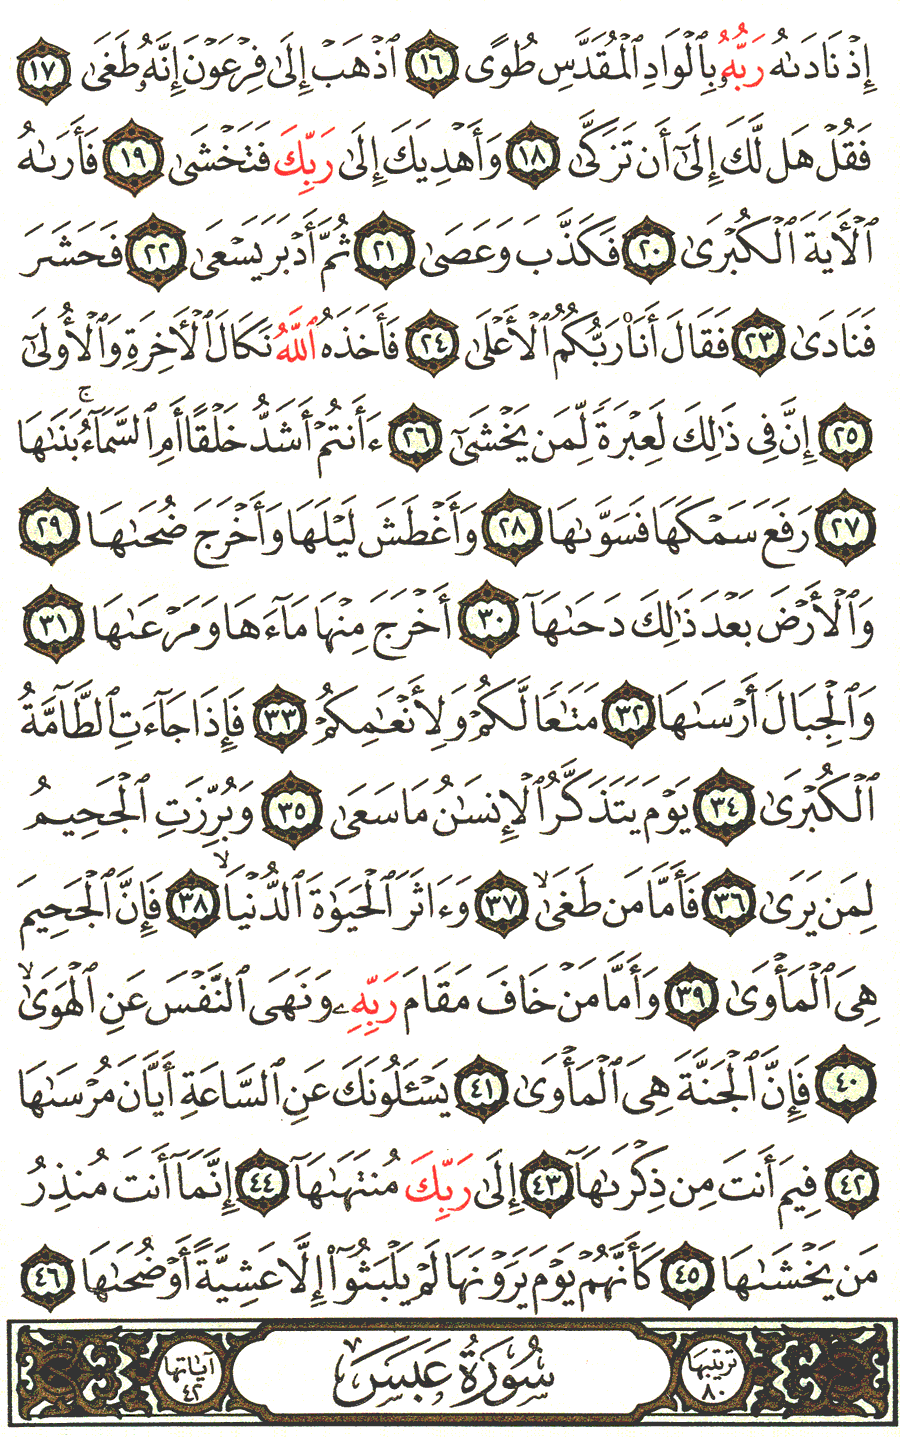 إِذْ نَادَىٰهُ رَبُّهُۥ بِٱلْوَادِ ٱلْمُقَدَّسِ طُوًى ١٦ ٱذْهَبْ إِلَىٰ فِرْعَوْنَ إِنَّهُۥ طَغَىٰ ١٧
فَقُلْ هَل لَّكَ إِلَىٰٓ أَن تَزَكَّىٰ ١٨ وَأَهْدِيَكَ إِلَىٰ رَبِّكَ فَتَخْشَىٰ ١٩ فَأَرَىٰهُ
ٱلْءَايَةَ ٱلْكُبْرَىٰ ٢٠ فَكَذَّبَ وَعَصَىٰ ٢١ ثُمَّ أَدْبَرَ يَسْعَىٰ ٢٢ فَحَشَرَ
فَنَادَىٰ ٢٣ فَقَالَ أَنَا۠ رَبُّكُمُ ٱلْأَعْلَىٰ ٢٤ فَأَخَذَهُ ٱللَّهُ نَكَالَ ٱلْءَاخِرَةِ وَٱلْأُولَىٰٓ
٢٥ إِنَّ فِى ذَٰلِكَ لَعِبْرَةً لِّمَن يَخْشَىٰٓ ٢٦ ءَأَنتُمْ أَشَدُّ خَلْقًا أَمِ ٱلسَّمَآءُ ۚ بَنَىٰهَا
٢٧ رَفَعَ سَمْكَهَا فَسَوَّىٰهَا ٢٨ وَأَغْطَشَ لَيْلَهَا وَأَخْرَجَ ضُحَىٰهَا ٢٩
وَٱلْأَرْضَ بَعْدَ ذَٰلِكَ دَحَىٰهَآ ٣٠ أَخْرَجَ مِنْهَا مَآءَهَا وَمَرْعَىٰهَا ٣١
وَٱلْجِبَالَ أَرْسَىٰهَا ٣٢ مَتَٰعًا لَّكُمْ وَلِأَنْعَٰمِكُمْ ٣٣ فَإِذَا جَآءَتِ ٱلطَّآمَّةُ
ٱلْكُبْرَىٰ ٣٤ يَوْمَ يَتَذَكَّرُ ٱلْإِنسَٰنُ مَا سَعَىٰ ٣٥ وَبُرِّزَتِ ٱلْجَحِيمُ
لِمَن يَرَىٰ ٣٦ فَأَمَّا مَن طَغَىٰ ۙ ٣٧ وَءَاثَرَ ٱلْحَيَوٰةَ ٱلدُّنْيَا ۙ ٣٨ فَإِنَّ ٱلْجَحِيمَ
هِىَ ٱلْمَأْوَىٰ ٣٩ وَأَمَّا مَنْ خَافَ مَقَامَ رَبِّهِۦ وَنَهَى ٱلنَّفْسَ عَنِ ٱلْهَوَىٰ ۙ
٤٠ فَإِنَّ ٱلْجَنَّةَ هِىَ ٱلْمَأْوَىٰ ٤١ يَسْـَٔلُونَكَ عَنِ ٱلسَّاعَةِ أَيَّانَ مُرْسَىٰهَا
٤٢ فِيمَ أَنتَ مِن ذِكْرَىٰهَآ ٤٣ إِلَىٰ رَبِّكَ مُنتَهَىٰهَآ ٤٤ إِنَّمَآ أَنتَ مُنذِرُ
مَن يَخْشَىٰهَا ٤٥ كَأَنَّهُمْ يَوْمَ يَرَوْنَهَا لَمْ يَلْبَثُوٓا۟ إِلَّا عَشِيَّةً أَوْ ضُحَىٰهَا ٤٦
ترتيبها ٨٠ سُورَةُ عَبَسَ آياتها ٤٢